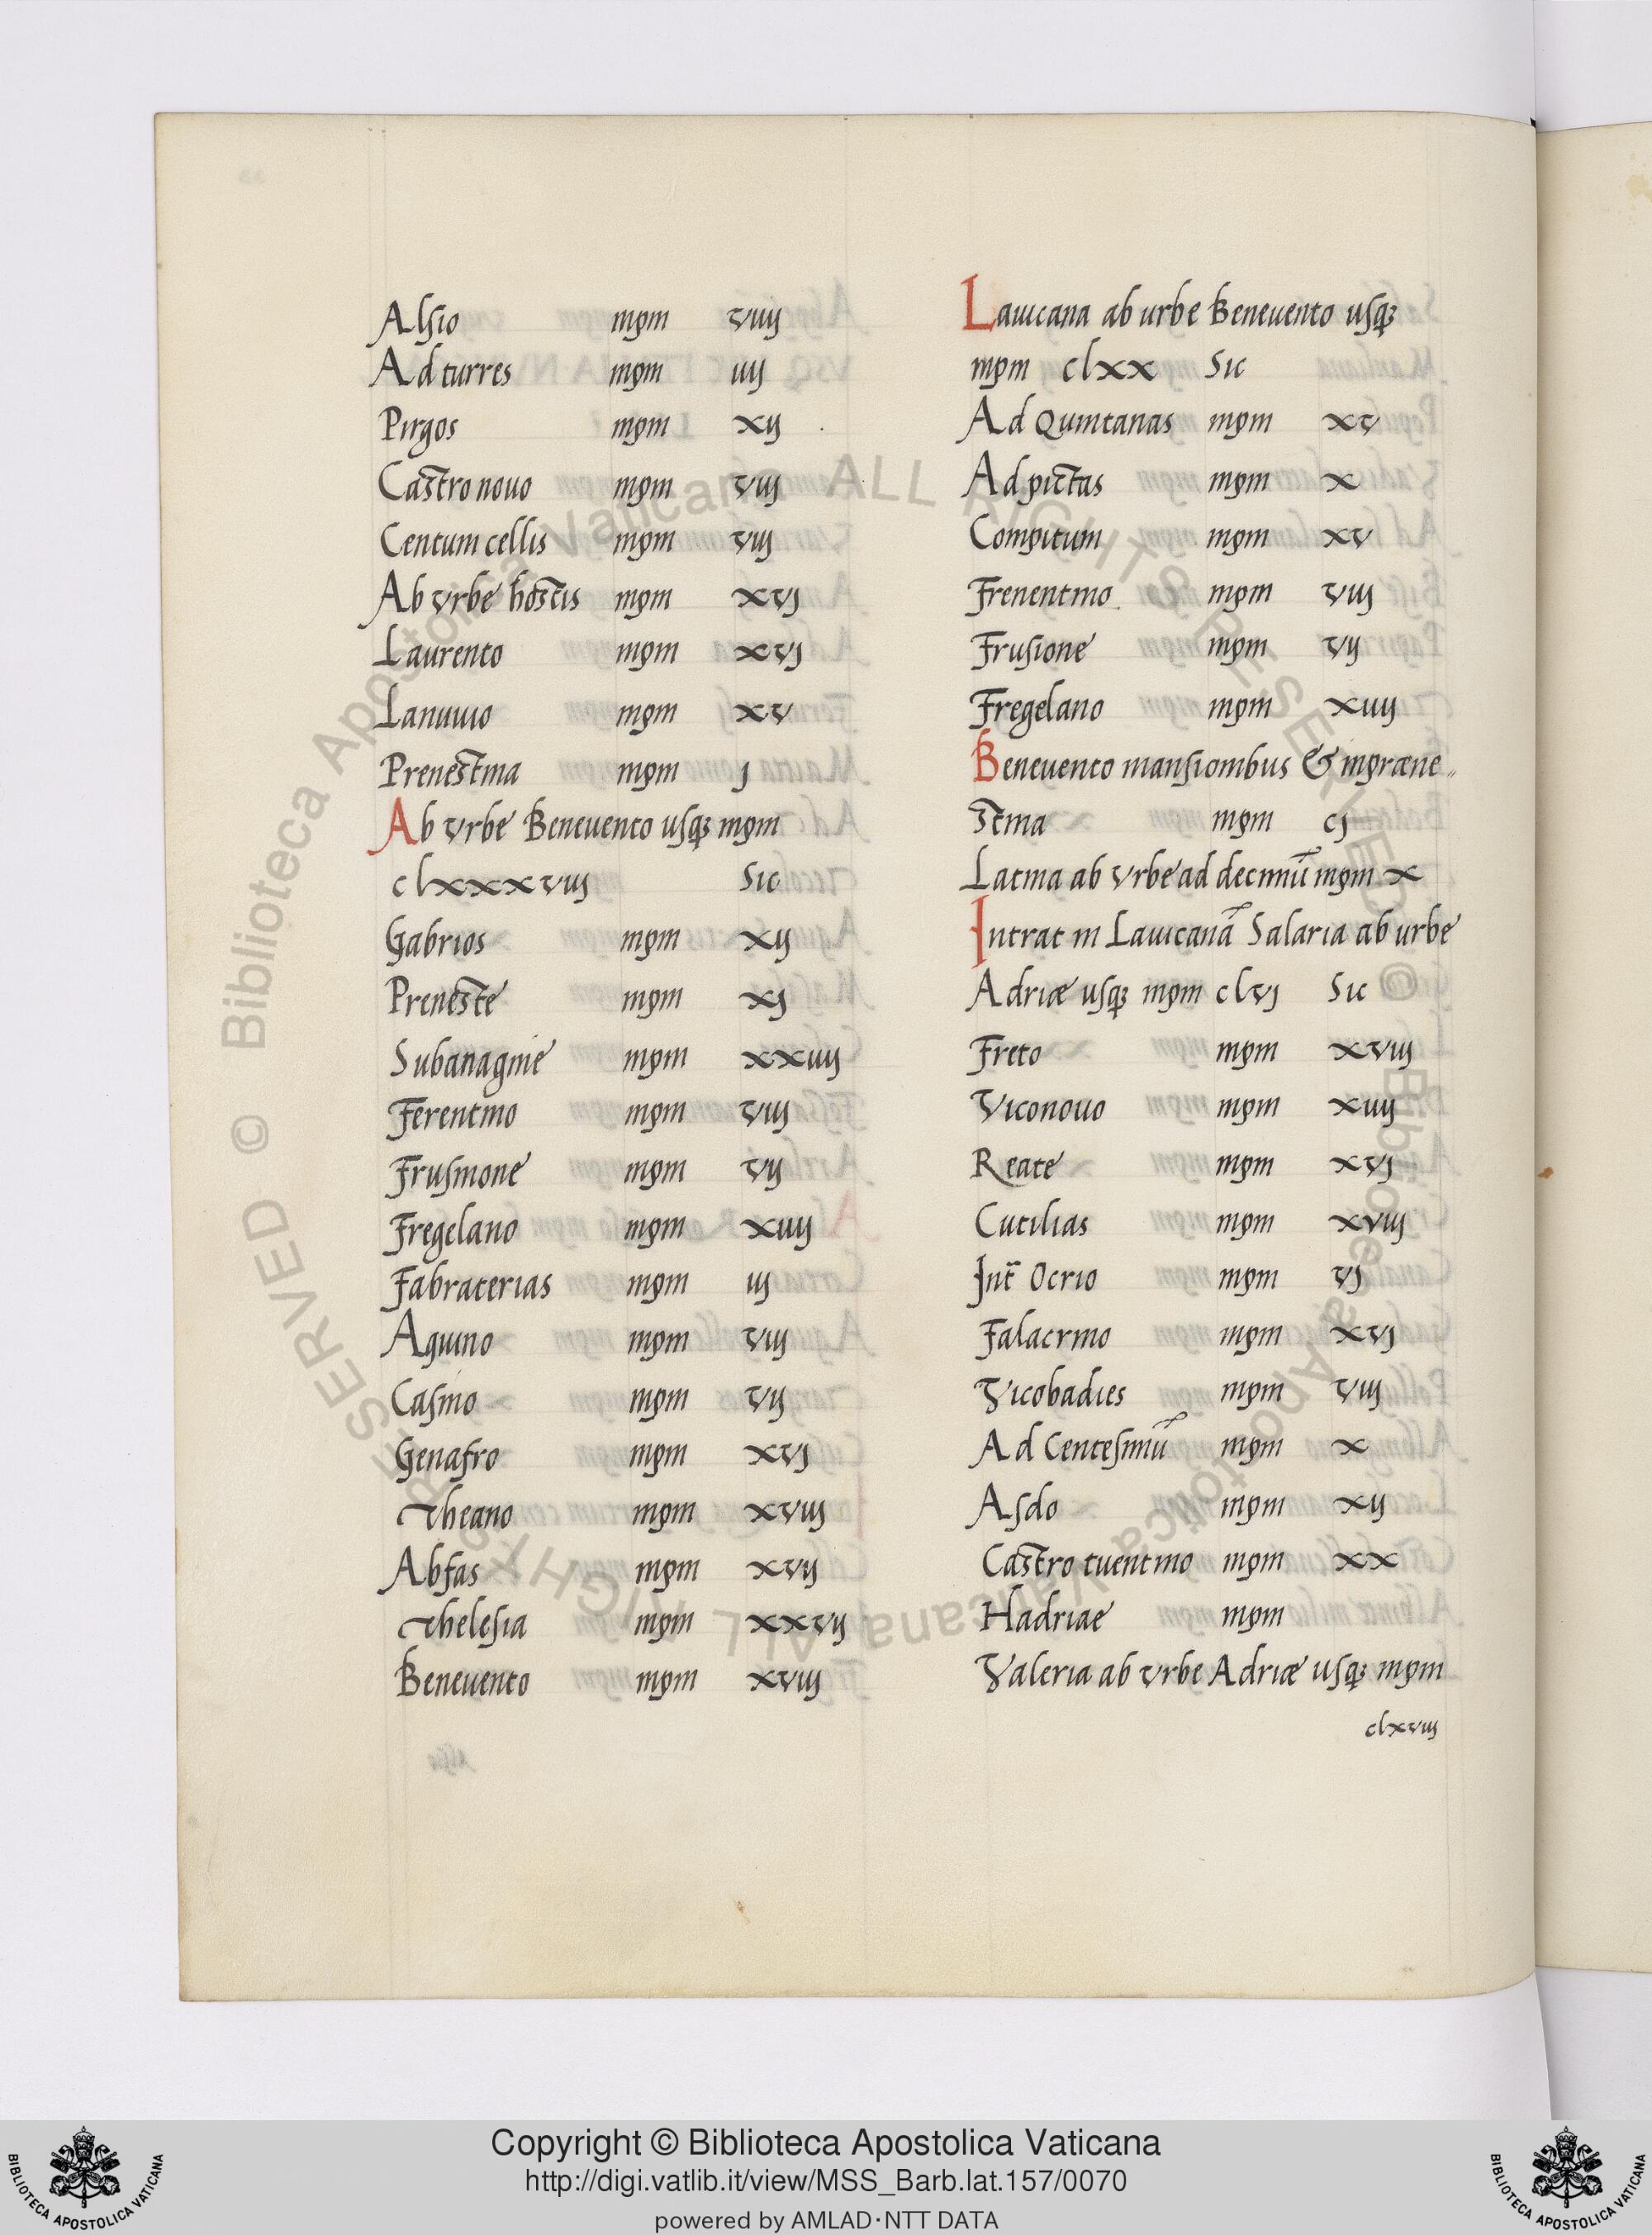 Alsio mpm viiij
Ad turres mpm iiij
Pirgos mpm xij
Castro nouo mpm viij
Centum cellis mpm viij
Ab vrbe hostis mpm xvj
Laurento mpm xvj
Lanuuio mpm xv
Prenestina mpm j
Ab vrbe Beneuento usq; mpm
clxxxviij Sic
Gabrios mpm xij
Preneste mpm xj
Subanagnie mpm xxiiij
Ferentino mpm viij
Frusinone mpm vij
Fregelano mpm xiiij
Fabraterias mpm iij
Aquino mpm viij
Casino mpm vij
Genafro mpm xvj
Theano mpm xviij
Abfas mpm xvij
Thelesia mpm xxvij
Beneuento mpm xviij
Lauicana ab urbe Beneuento usq;
mpm clxx Sic
Ad Quintanas mpm xv
Ad pictas mpm x
Compitum mpm xv
Frenentino mpm viij
Frusione mpm vij
Fregelano mpm xiiij
Beneuento mansionibus & in præne„
stina mpm cj
Latina ab vrbe ad decimū mpm x
Intrat in Lauicanā Salaria ab urbe
Adriæ usq; mpm clvj Sic
Freto mpm xviij
Viconouo mpm xiiij
Reate mpm xvj
Cutilias mpm xviij
Int̄ Ocrio mpm vj
Falacrino mpm xvj
Vicobadies mpm viij
Ad Centesimū mpm x
Asdo mpm xij
Castro tuentino mpm xx
Hadriae mpm
Valeria ab vrbe Adriæ usq; mpm
clxviij
Biblioteca Apostolica Vaticana ALL RIGHTS RESERVED © Biblioteca Apostolica Vaticana ALL RIGHTS RESERVED ©
Copyright © Biblioteca Apostolica Vaticana
http://digi.vatlib.it/view/MSS_Barb.lat.157/0070
powered by AMLAD·NTT DATA
BIBLIOTECA APOSTOLICA VATICANA
BIBLIOTECA APOSTOLICA VATICANA